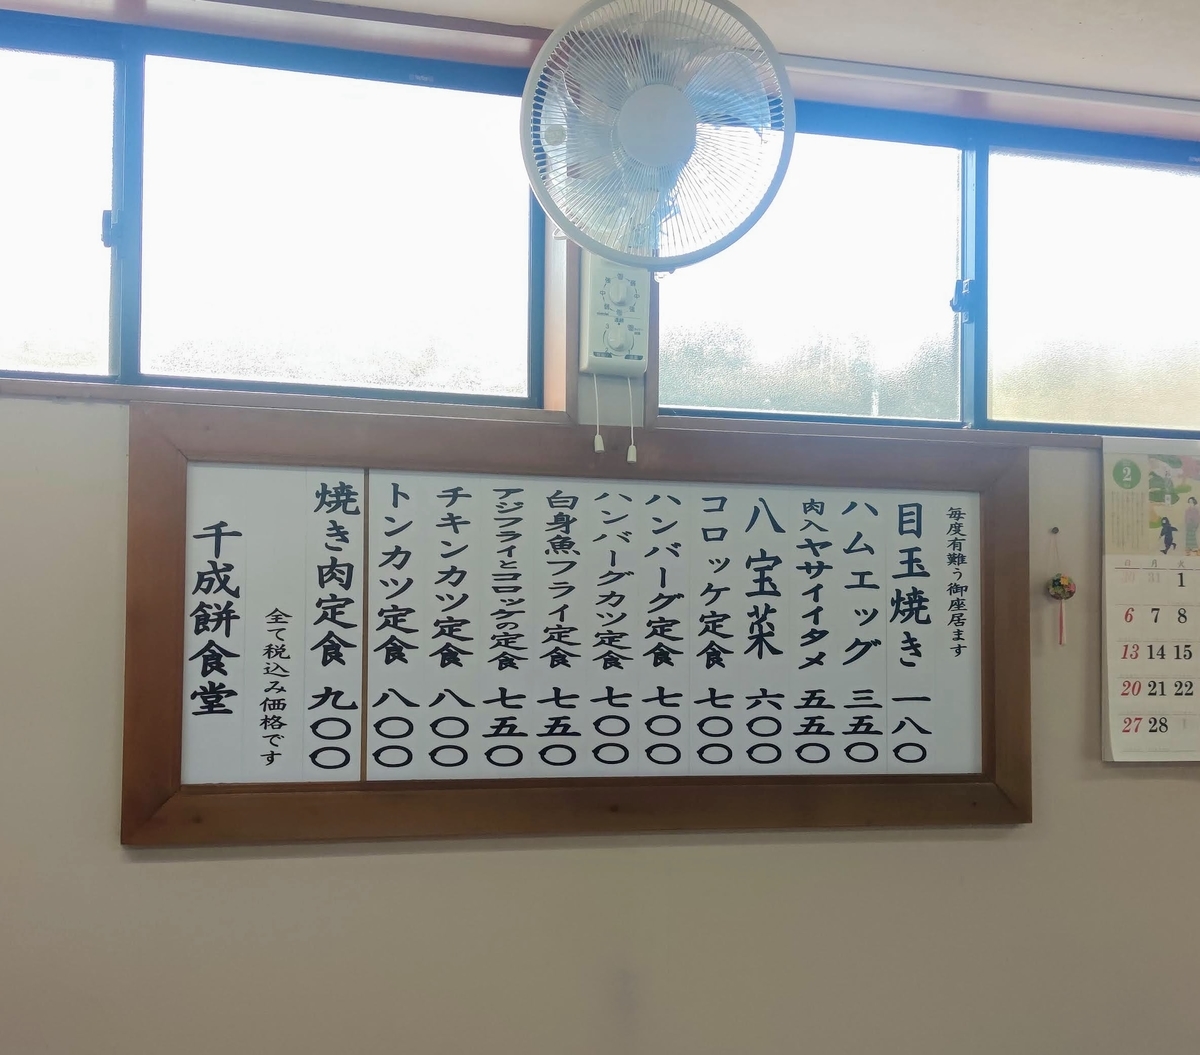 毎度有難う御座居ます
目玉焼き 一八〇
ハムエッグ 三五〇
肉入ヤサイイタメ 五五〇
八宝菜 六〇〇
コロッケ定食 七〇〇
ハンバーグ定食 七〇〇
ハンバーグカツ定食 七〇〇
白身魚フライ定食 七五〇
アジフライとコロッケの定食 七五〇
チキンカツ定食 八〇〇
トンカツ定食 八〇〇
焼き肉定食 九〇〇
全て税込み価格です
千成餅食堂
2
日 月 火
30 31 1
6 7 8
13 14 15
20 21 22
27 28 1